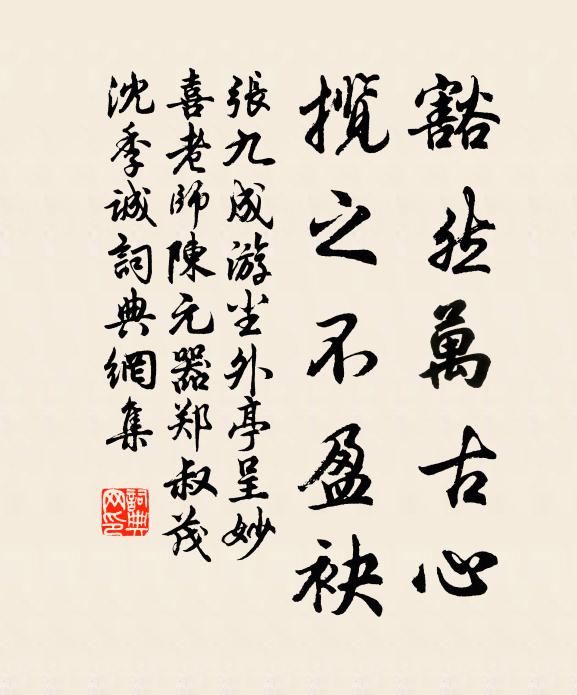 豁然萬古心
攬之不盈袂
張九成游尘外亭呈妙
喜老師陳元器郑叔茂
沈季诚詞典網集
詞典网印